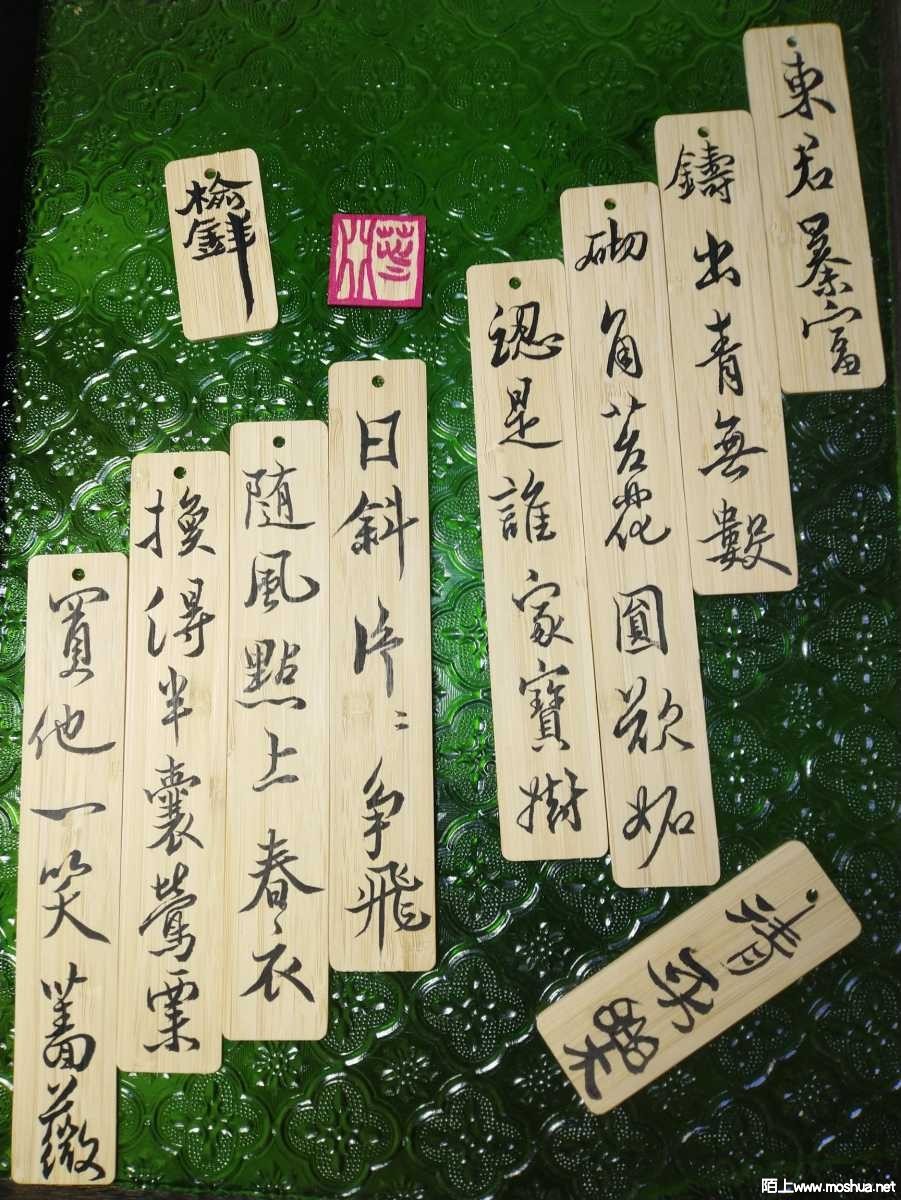 清平樂
榆錢
東君暴富
鑄出青無數
砌角苔花圓欲妬
認是誰家寶樹
日斜片〻争飛
隨風點上春衣
換得半囊鶯粟
買他一笑薔薇
陌上www.moshua.net